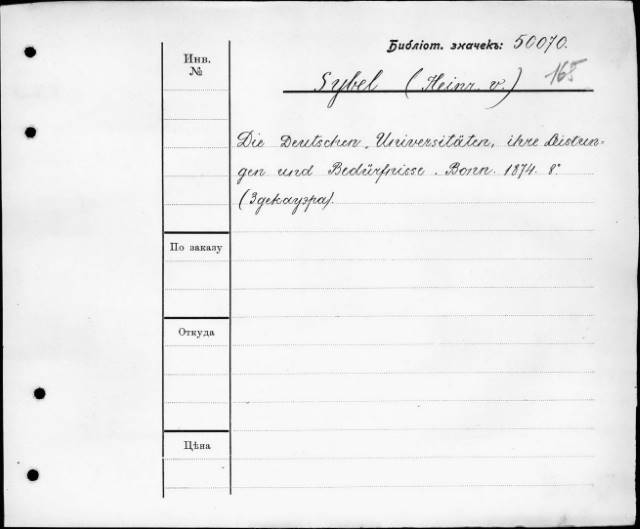 Библіот. значекъ: 50070.
Инв.
№
Sybel (Heinr. v.) 165
Die Deutschen Universitäten, ihre Leistun-
gen und Bedürfnisse. Bonn. 1874. 8°
(Здекауэра).
По заказу
Откуда
Цѣна